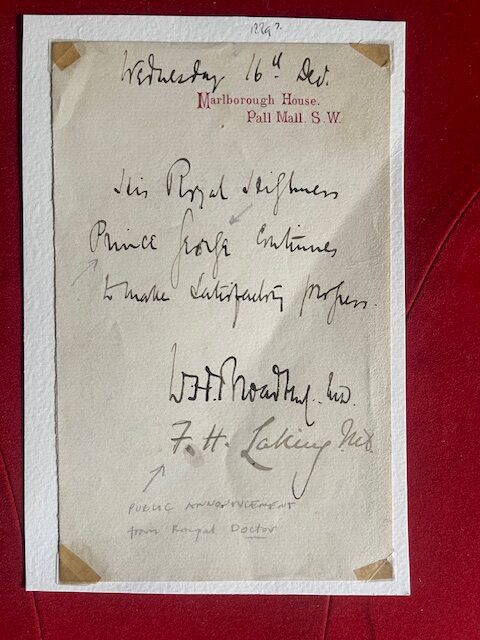 Wednesday 16th Dec.
Marlborough House.
Pall Mall. S.W.
His Royal Highness
Prince George continues
to make satisfactory progress.
W.H. Broadbent. M.D.
F. H. Laking M.D.
PUBLIC ANNOUNCEMENT
from Royal Doctor